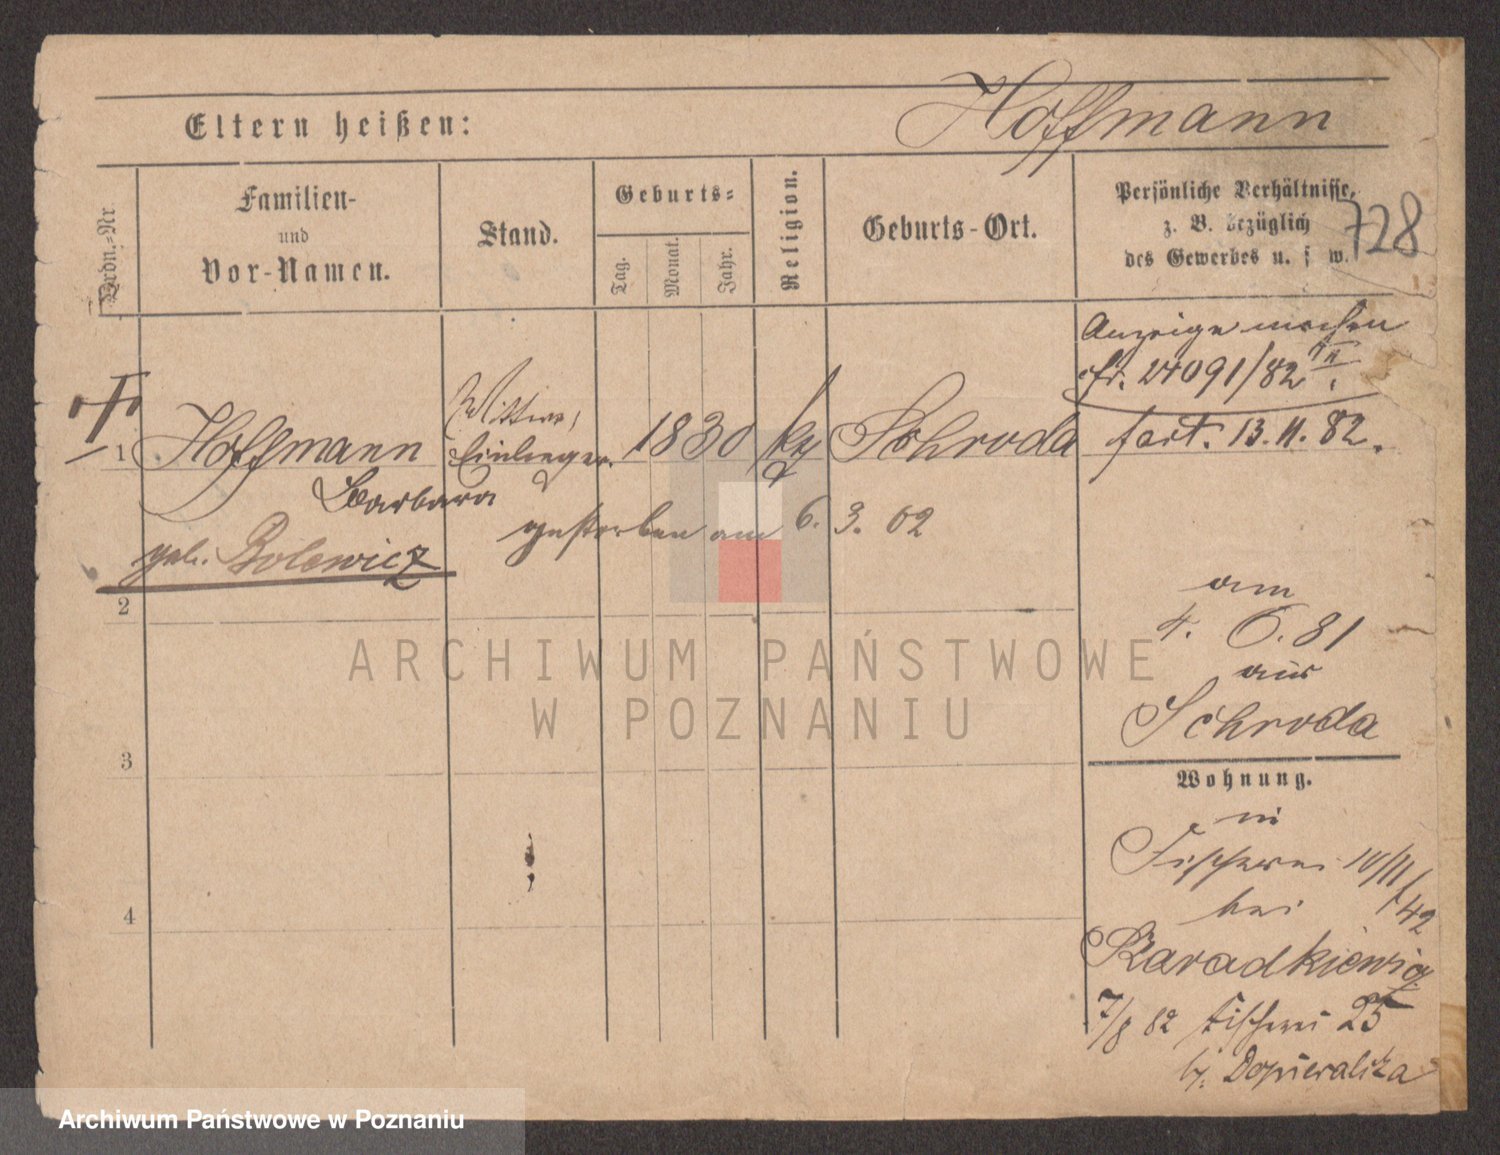 Eltern heißen:
Hoffmann
Ordn.-Nr.
Familien-
und
Vor-Namen.
Stand.
Geburts-
Tag.
Monat.
Jahr.
Religion.
Geburts-Ort.
Persönliche Verhältnisse,
z. B. bezüglich
des Gewerbes u. s. w.
728
Anzeige machen
24091/82
fort. 13.11.82.
1 Hoffmann Wittwe, 1830 Schroda
Barbara
geb. Bolewicz
gestorben am 6. 3. 02
2
3
4
am
4. 6. 81
aus
Schroda
Wohnung.
in
Fischerei 10/11
bei
7/8 82 Fischerei 25
Dopieralska
ARCHIWUM PAŃSTWOWE
W POZNANIU
Archiwum Państwowe w Poznaniu